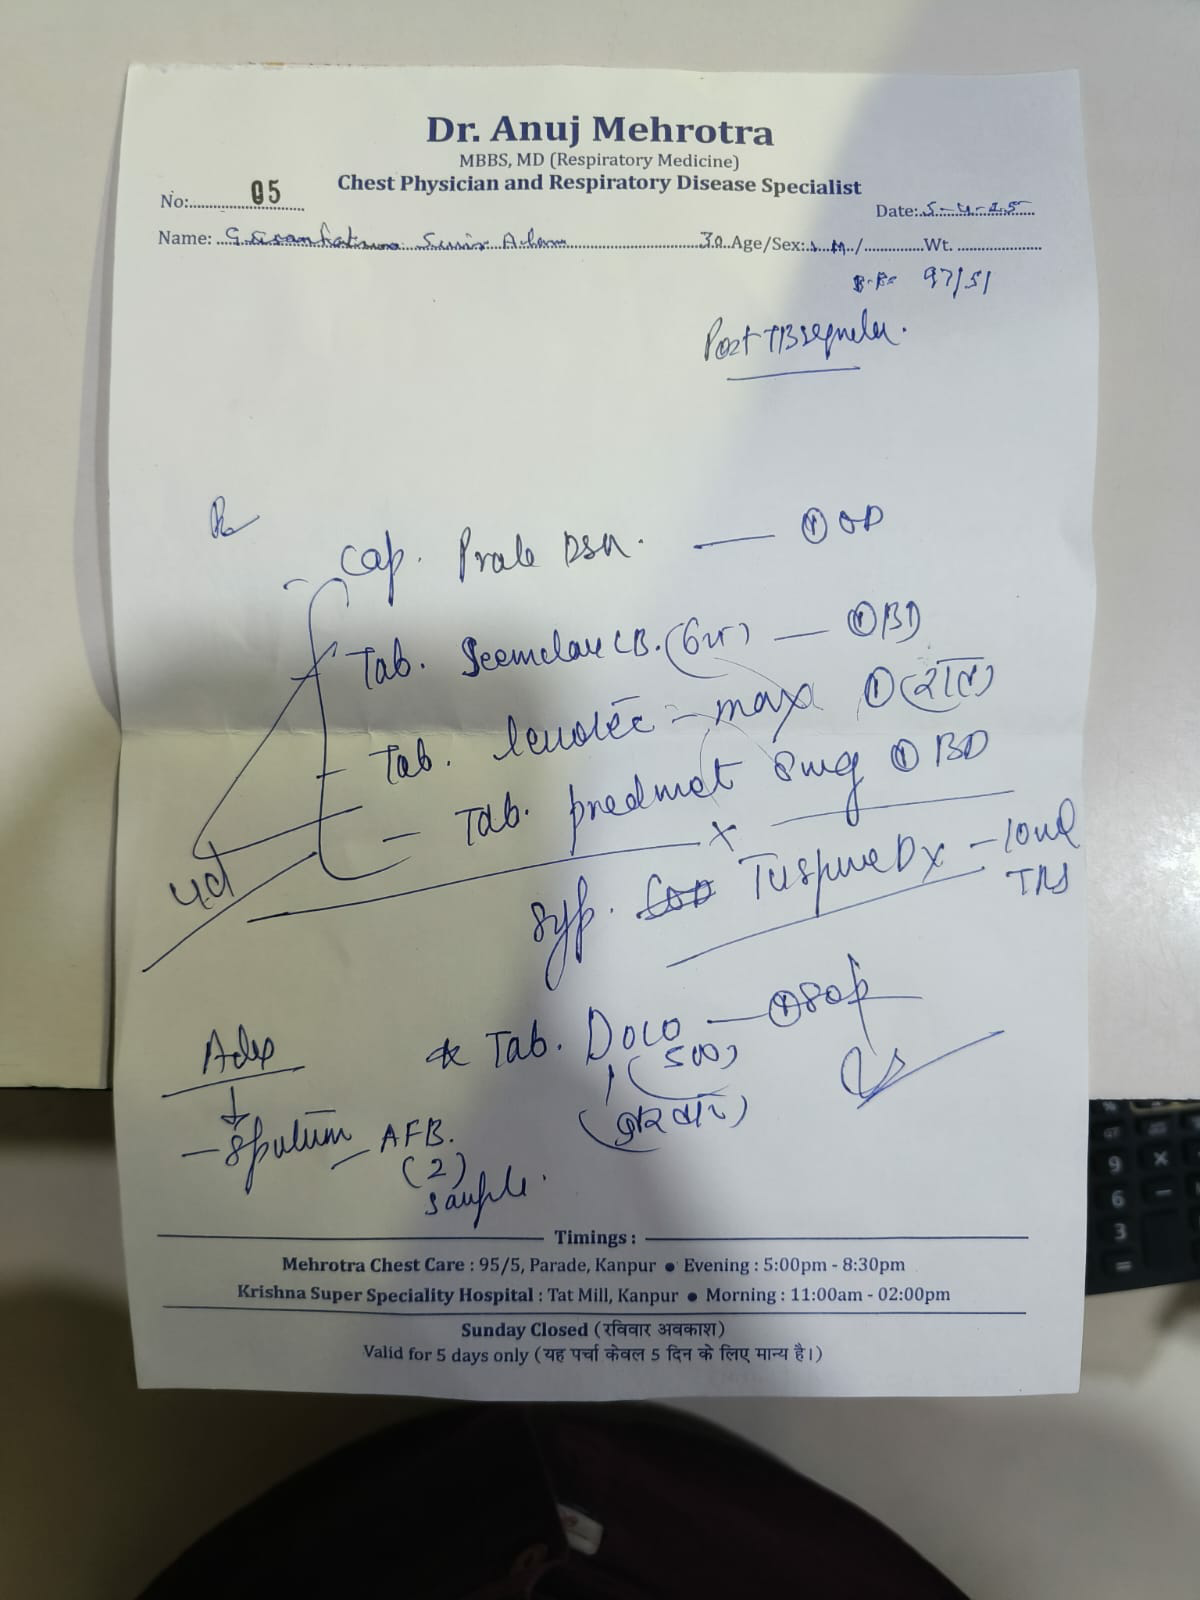 Dr. Anuj Mehrotra
MBBS, MD (Respiratory Medicine)
Chest Physician and Respiratory Disease Specialist
No: 05
Date: 5-4-25
Name: 30 Age/Sex: M / Wt.
97/51
Post TB sequelae.
Cap. DSR. — ① OD
Tab. CB. — ① BD
Tab. - max ① (रात)
Tab. predmet 8mg ① BD
x
syp. Dx - 10ml
TDS
Adv
* Tab. Dolo — ① SOP
(500)
- Sputum - AFB.
(2)
sample.
Timings :
Mehrotra Chest Care : 95/5, Parade, Kanpur ● Evening : 5:00pm - 8:30pm
Krishna Super Speciality Hospital : Tat Mill, Kanpur ● Morning : 11:00am - 02:00pm
Sunday Closed (रविवार अवकाश)
Valid for 5 days only (यह पर्चा केवल 5 दिन के लिए मान्य है।)
9 ×
6 −
3
=